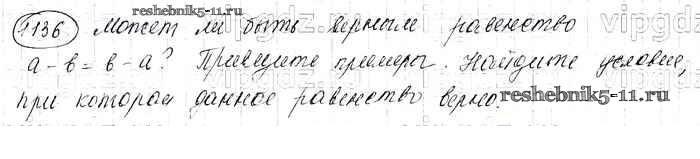 1136 Может ли быть верным равенство
а-в=в-а? Приведите примеры. Найдите условие,
при котором данное равенство верно.
reshebnik5-11.ru
reshebnik5-11.ru
vipgdz